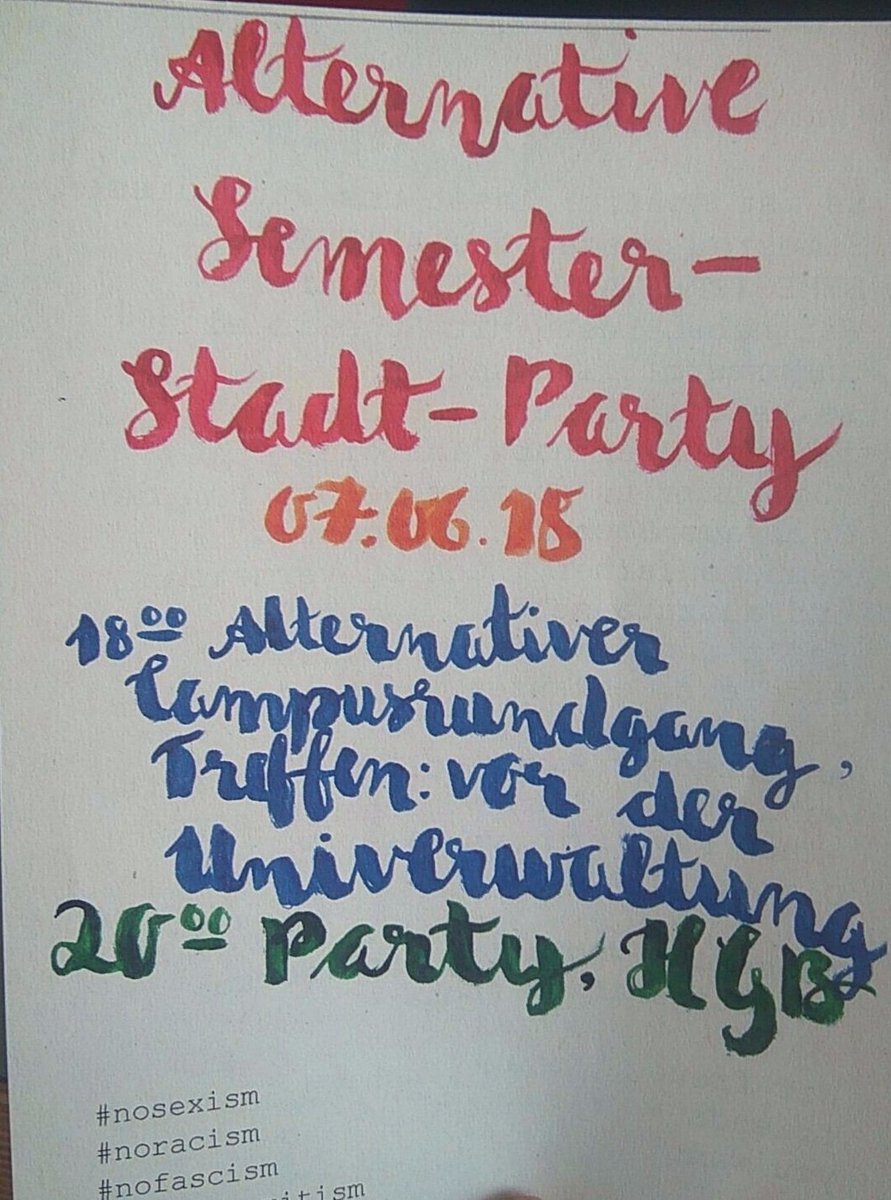 Alternative
Semester-
Stadt-Party
07.06.18
18°° Alternativer
Campusrundgang,
Treffen: vor der
Univerwaltung
20°° Party, HGB
#nosexism
#noracism
#nofascism
itism